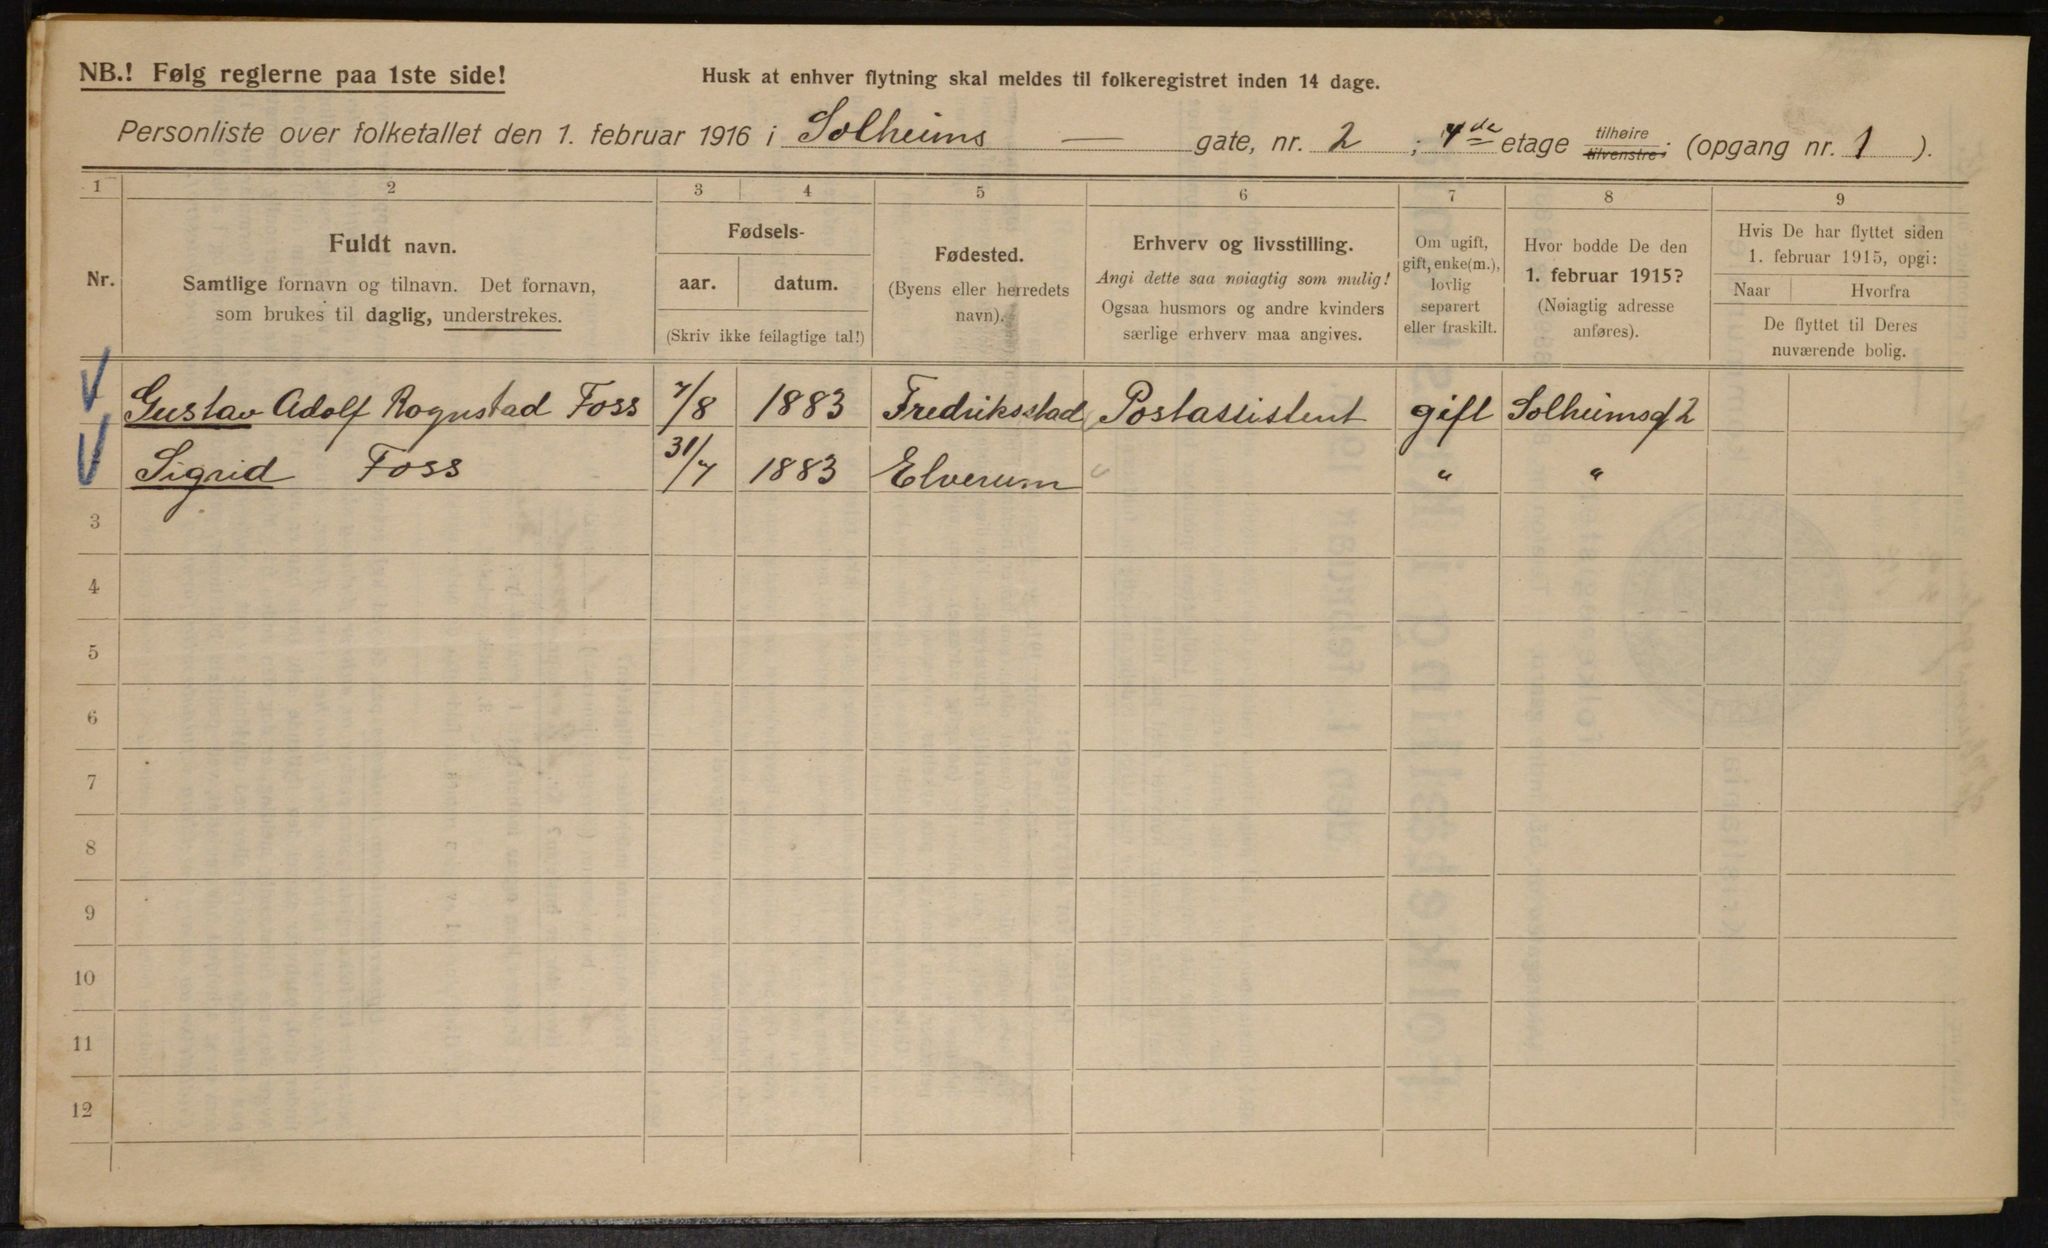 NB.! Følg reglerne paa 1ste side!
Husk at enhver flytning skal meldes til folkeregistret inden 14 dage.
Personliste over folketallet den 1. februar 1916 i Solheims — gate, nr. 2 ; 4de etage tilhøire tilvenstre; (opgang nr. 1 ).
1 2 3 4 5 6 7 8 9
Nr.
Fuldt navn.
Samtlige fornavn og tilnavn. Det fornavn,
som brukes til daglig, understrekes.
Fødsels-
aar. datum.
(Skriv ikke feilagtige tal!)
Fødested.
(Byens eller herredets
navn).
Erhverv og livsstilling.
Angi dette saa nøiagtig som mulig!
Ogsaa husmors og andre kvinders
særlige erhverv maa angives.
Om ugift,
gift, enke(m.),
lovlig
separert
eller fraskilt.
Hvor bodde De den
1. februar 1915?
(Nøiagtig adresse
anføres).
Hvis De har flyttet siden
1. februar 1915, opgi:
Naar Hvorfra
De flyttet til Deres
nuværende bolig.
Gustav Adolf Rognstad Foss 7/8 1883 Fredriksstad Postassistent gift Solheimsg 2
Sigrid Foss 31/7 1883 Elverum " "
3
4
5
6
7
8
9
10
11
12